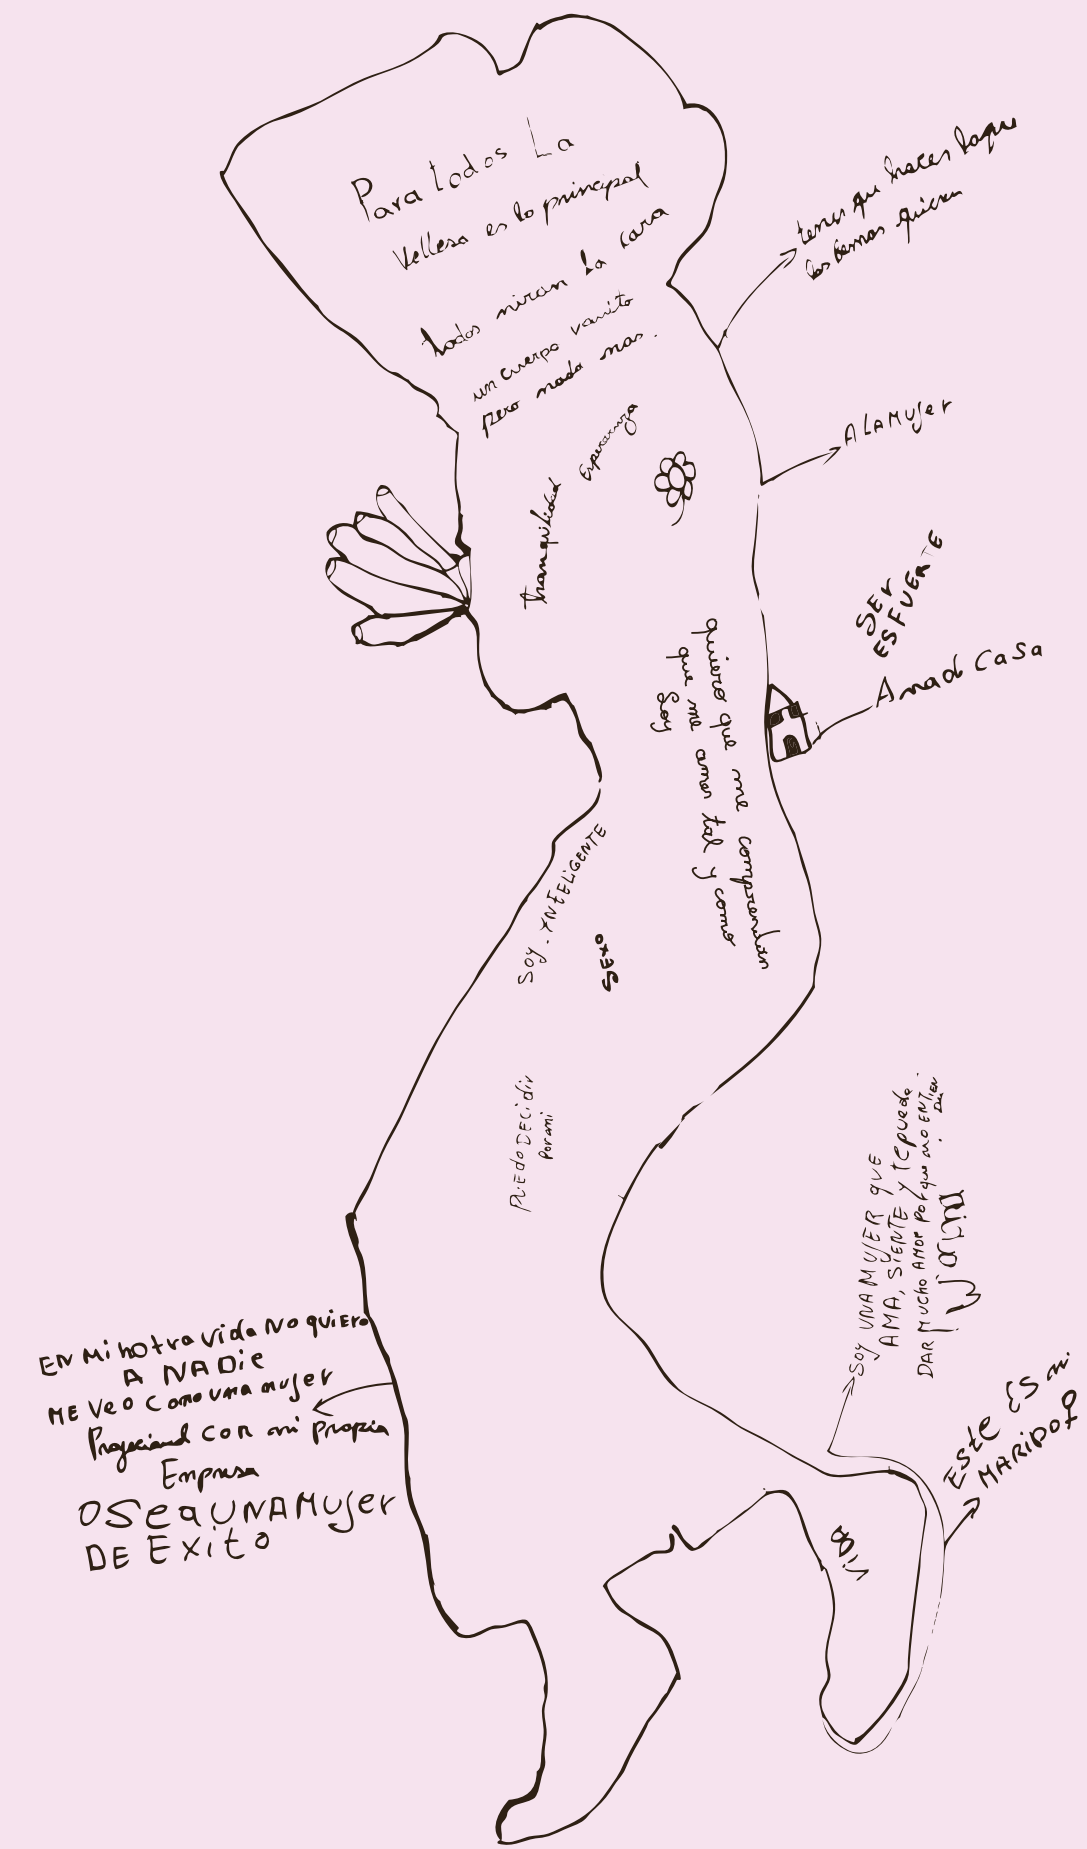 Para todos La
Vellesa es lo principal
todos miran la cara
un cuerpo vonito
pero nada mas.
tenes que hacer loque
los demas quieren
A LA MUJer
Esperanza
tranquilidad
SER
ES FUERTE
Amad Casa
quiero que me comprendan
que me amen tal y como
Soy
SOY - YNTELIGENTE
SExo
PUEdo DECidir
Por mi
SOY UNA MUJER QUE
AMA, SIENTE Y te puede
DAR MUCHO AMOR POR que no ENTIEN
EN Mi hotra vida No quiero
A NADie
ME VeO COMO UNA mujer
con mi propia
Empresa
O Sea UNA MUJer
DE Exito
EStE ES mi
MARIDO